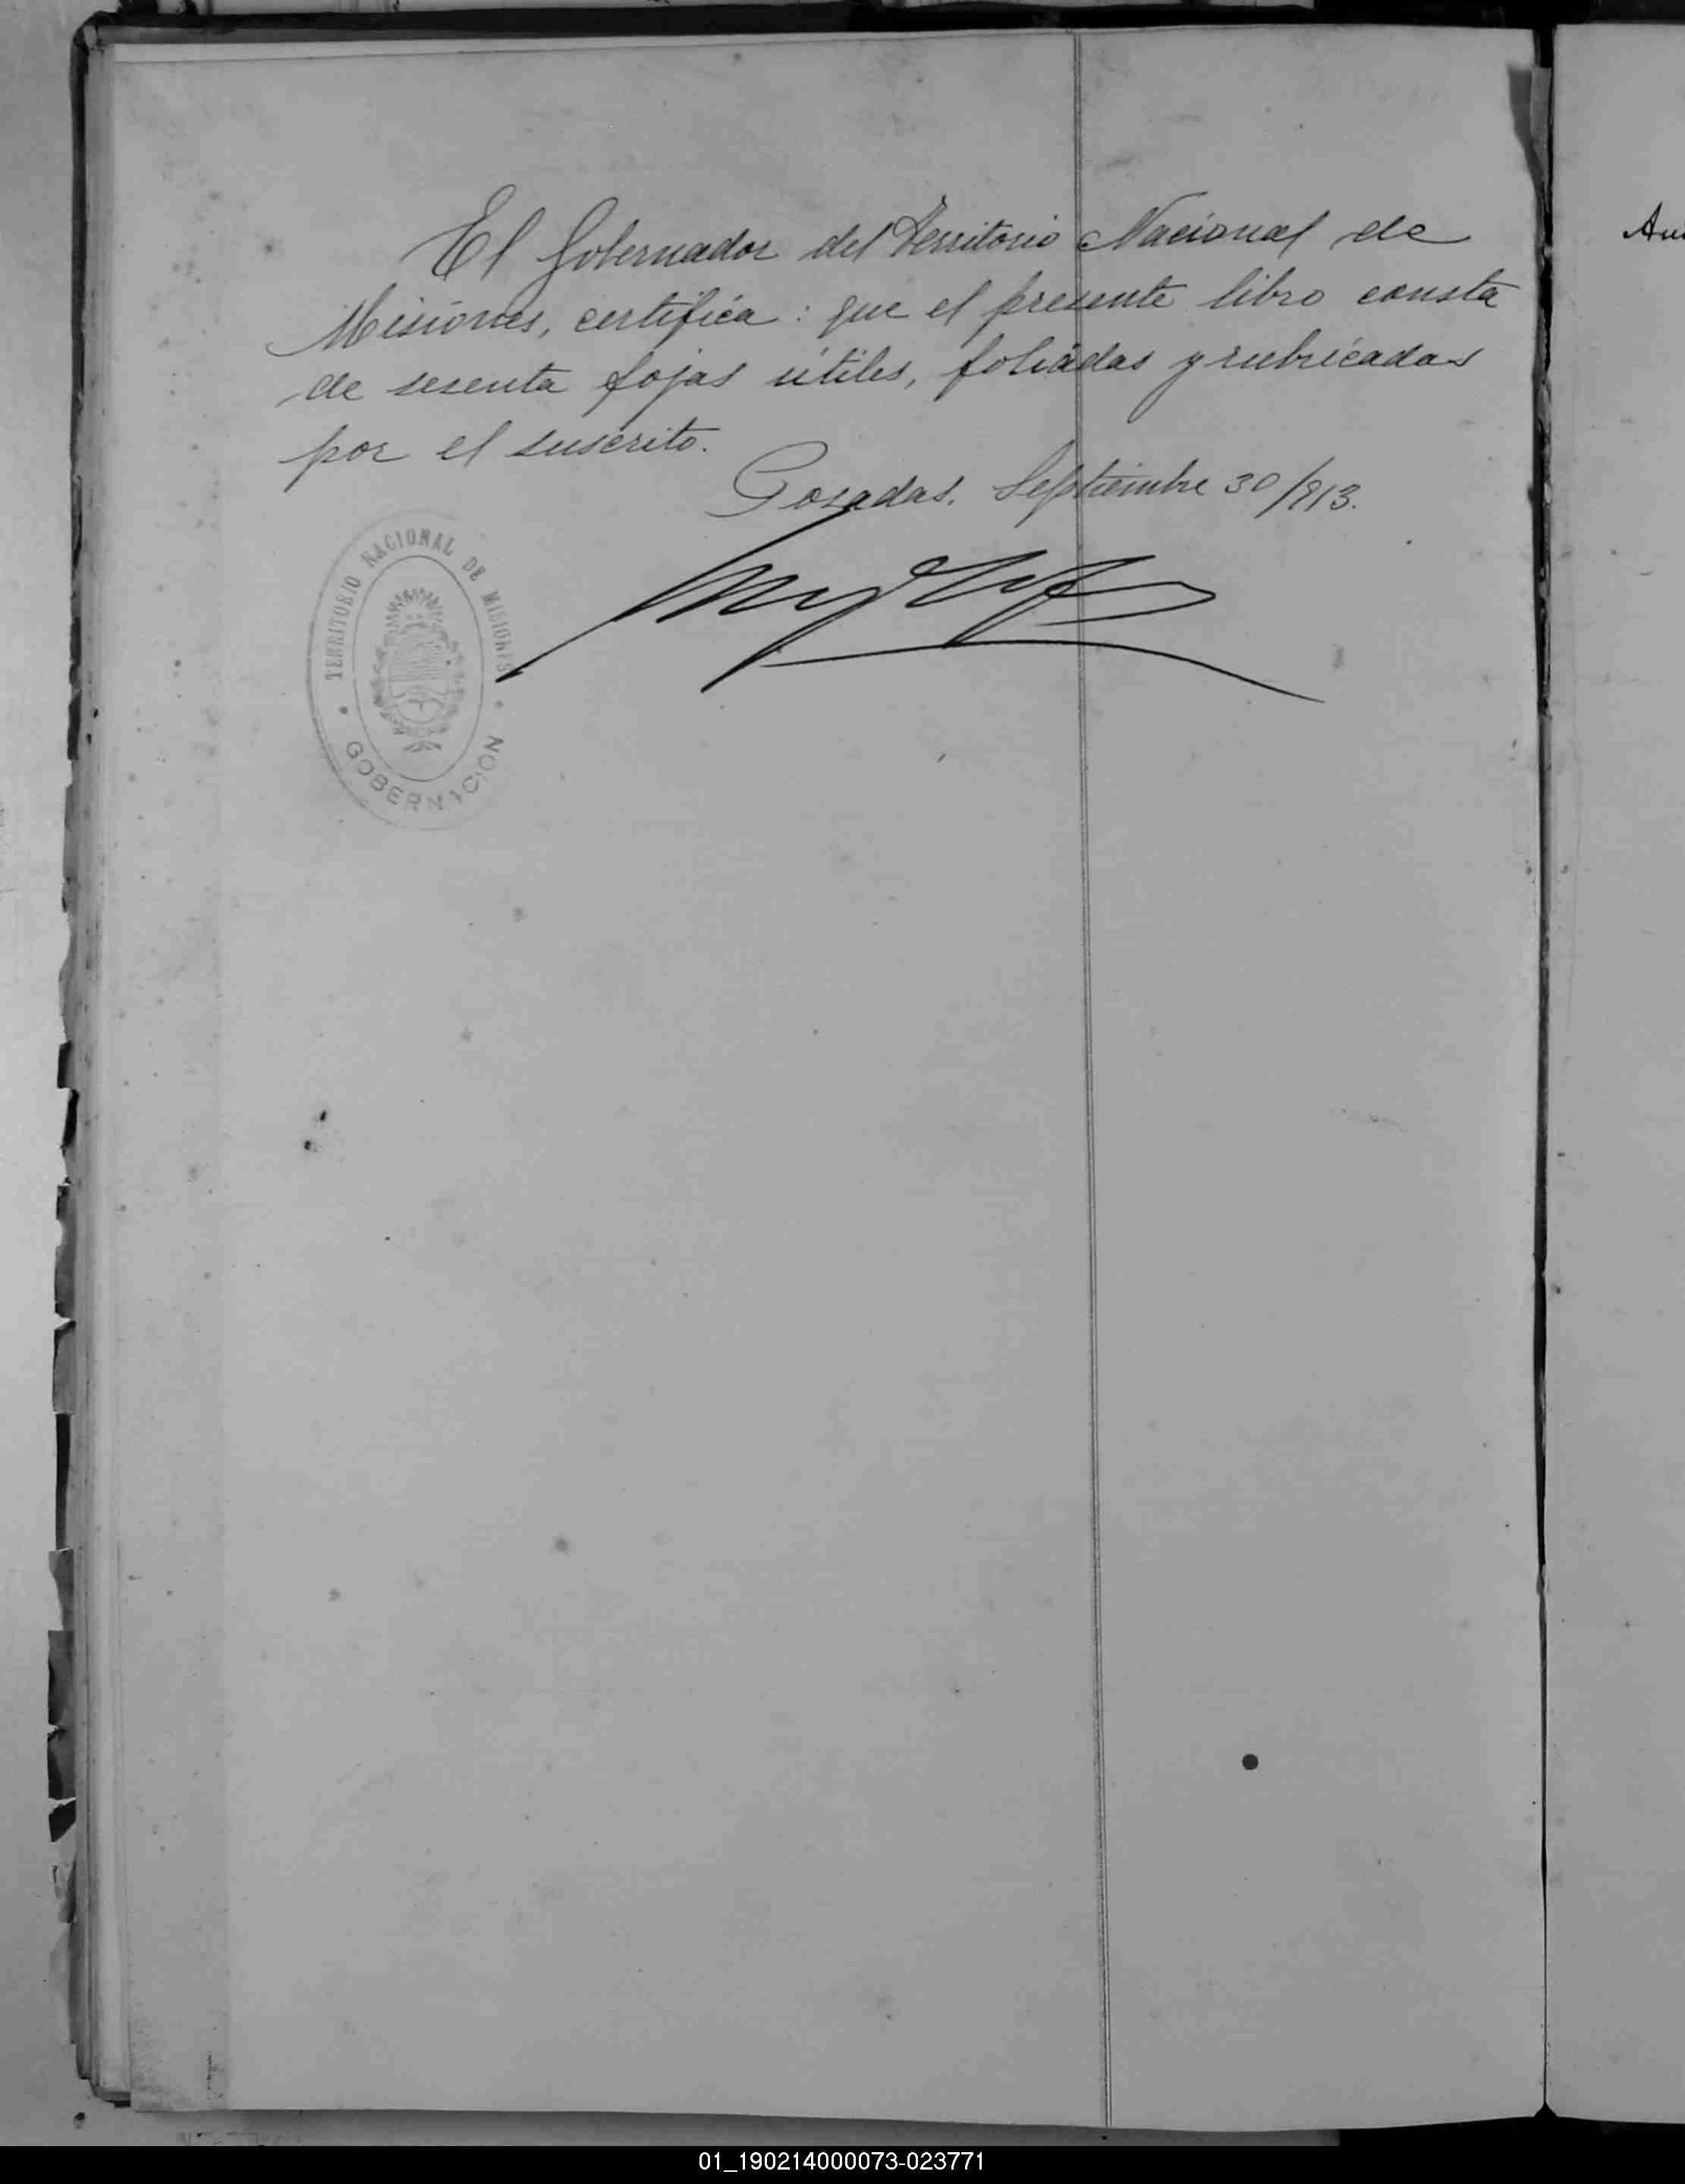 El Gobernador del Territorio Nacional de
Misiones, certifica: que el presente libro consta
de sesenta fojas útiles, foliadas y rubricadas
por el suscrito.
Posadas, Septiembre 30/913.
TERRITORIO NACIONAL DE MISIONES
GOBERNACION
01_190214000073-023771